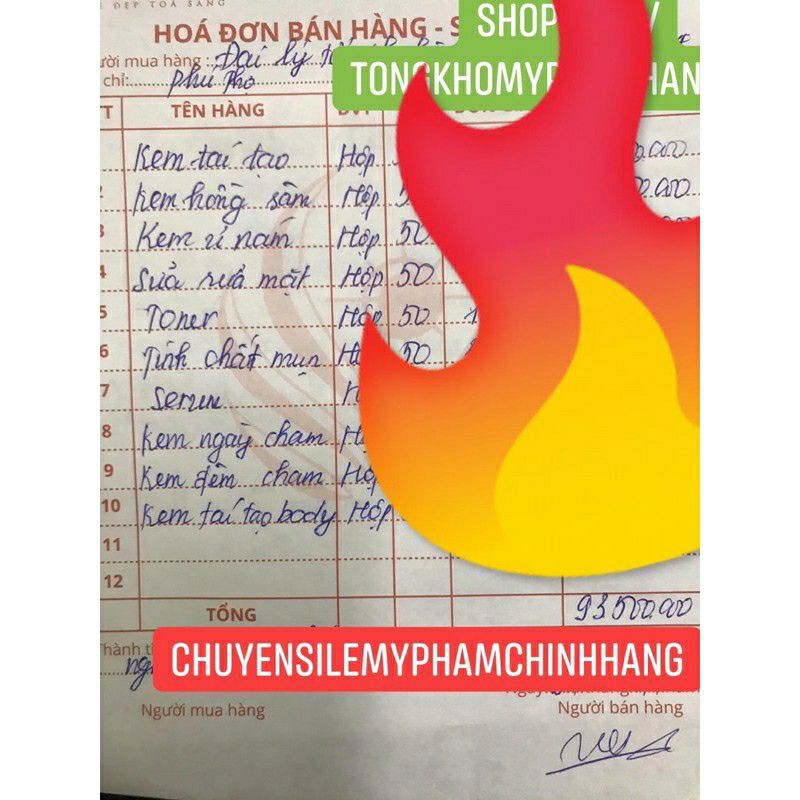 ĐẸP TOẢ SÁNG
HOÁ ĐƠN BÁN HÀNG - S
SHOP
ười mua hàng : Đại lý
TONGKHOMYP HAN
chỉ: Phú Thọ
T TÊN HÀNG ĐVT
Kem tái tạo Hộp 0.000
Kem hồng sâm Hộp 5 0.000
3 Kem rí nám Hộp 50
4 Sửa rửa mặt Hộp 50
5 Toner Hộp 50 1
6 Tinh chất mụn Hộ 50
7 Serum H
8 Kem ngày cham Hộ
9 Kem đêm cham Hộp
10 Kem tái tạo body Hộp
11
12
TỔNG 93500.000
Thành ti
CHUYENSILEMYPHAMCHINHHANG
ng
Người mua hàng Người bán hàng